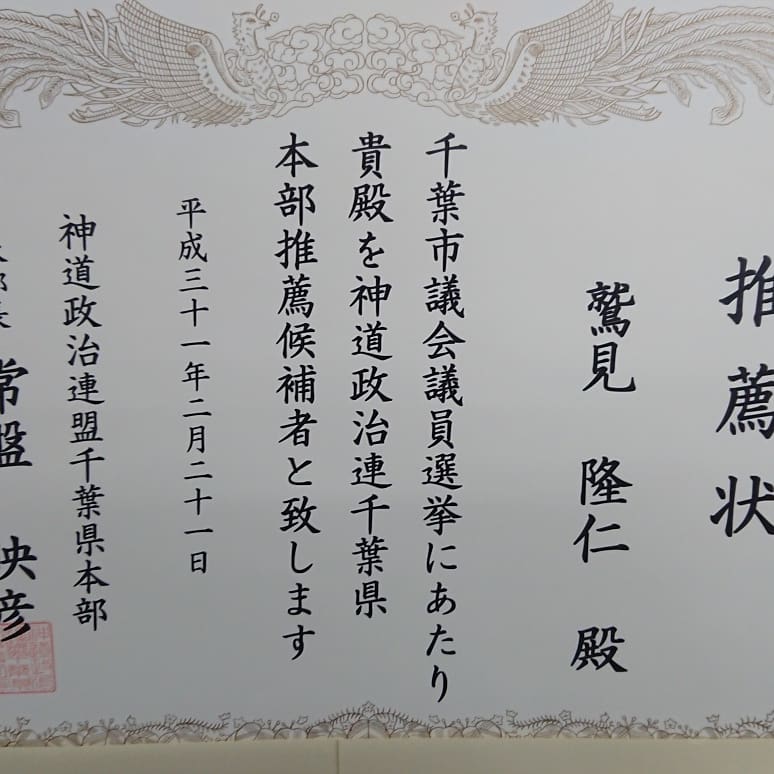 推薦状
鷲見 隆仁 殿
千葉市議会議員選挙にあたり
貴殿を神道政治連千葉県
本部推薦候補者と致します
平成三十一年二月二十一日
神道政治連盟千葉県本部
本部長 常盤 映彦